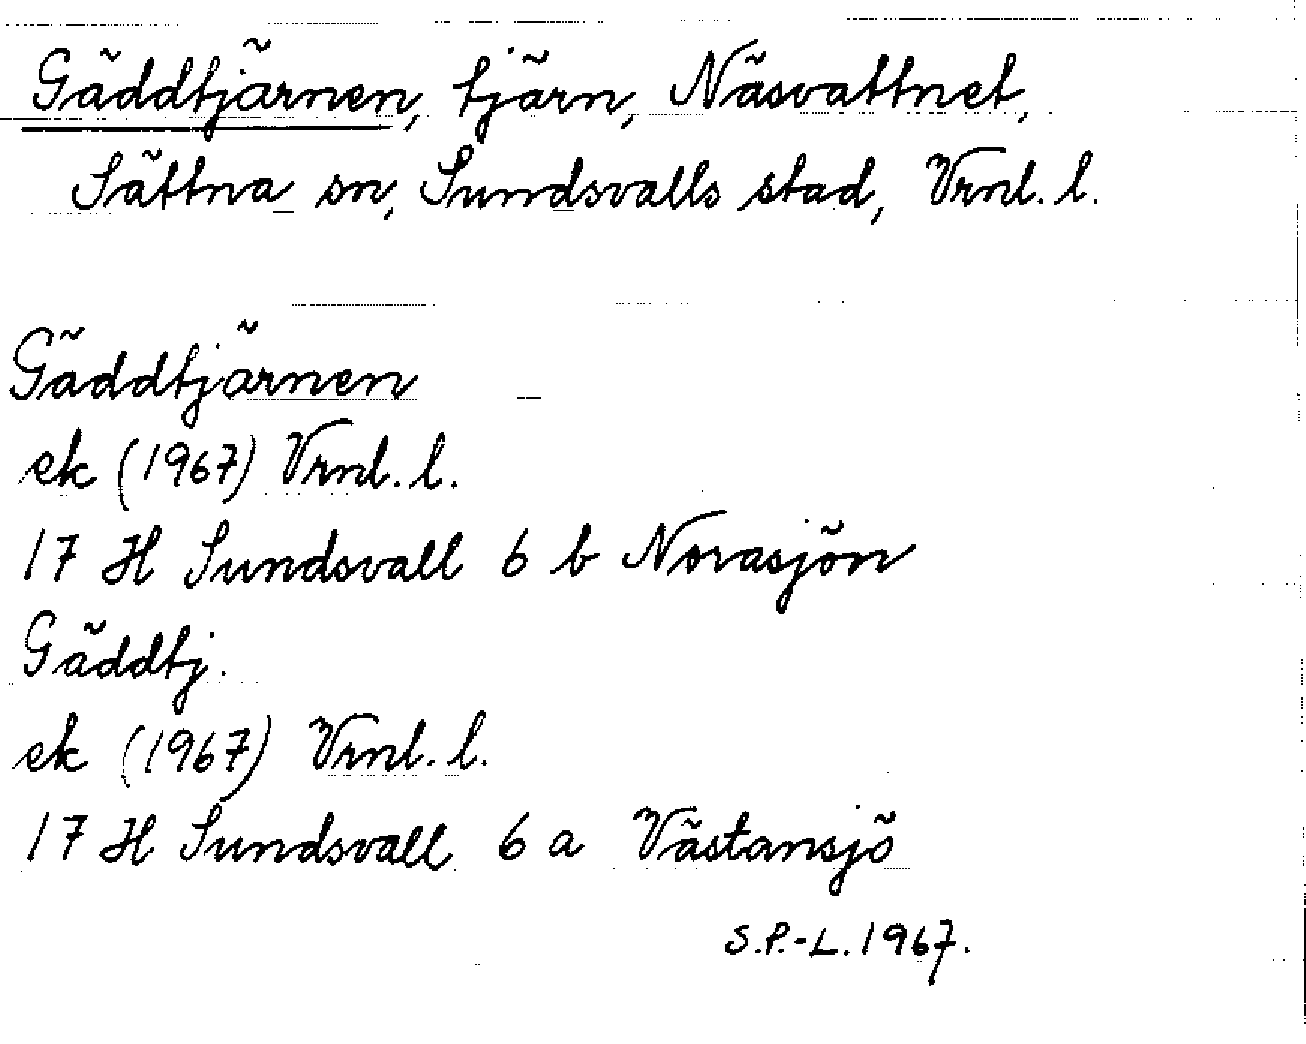 Gäddtjärnen, tjärn, Näsvattnet,
Sättna sn, Sundsvalls stad, Vrnl. l.
Gäddtjärnen
ek (1967) Vrnl. l.
17 H Sundsvall 6 b Norasjön
Gäddtj.
ek (1967) Vrnl. l.
17 H Sundsvall 6 a Västansjö
S.P.-L. 1967.